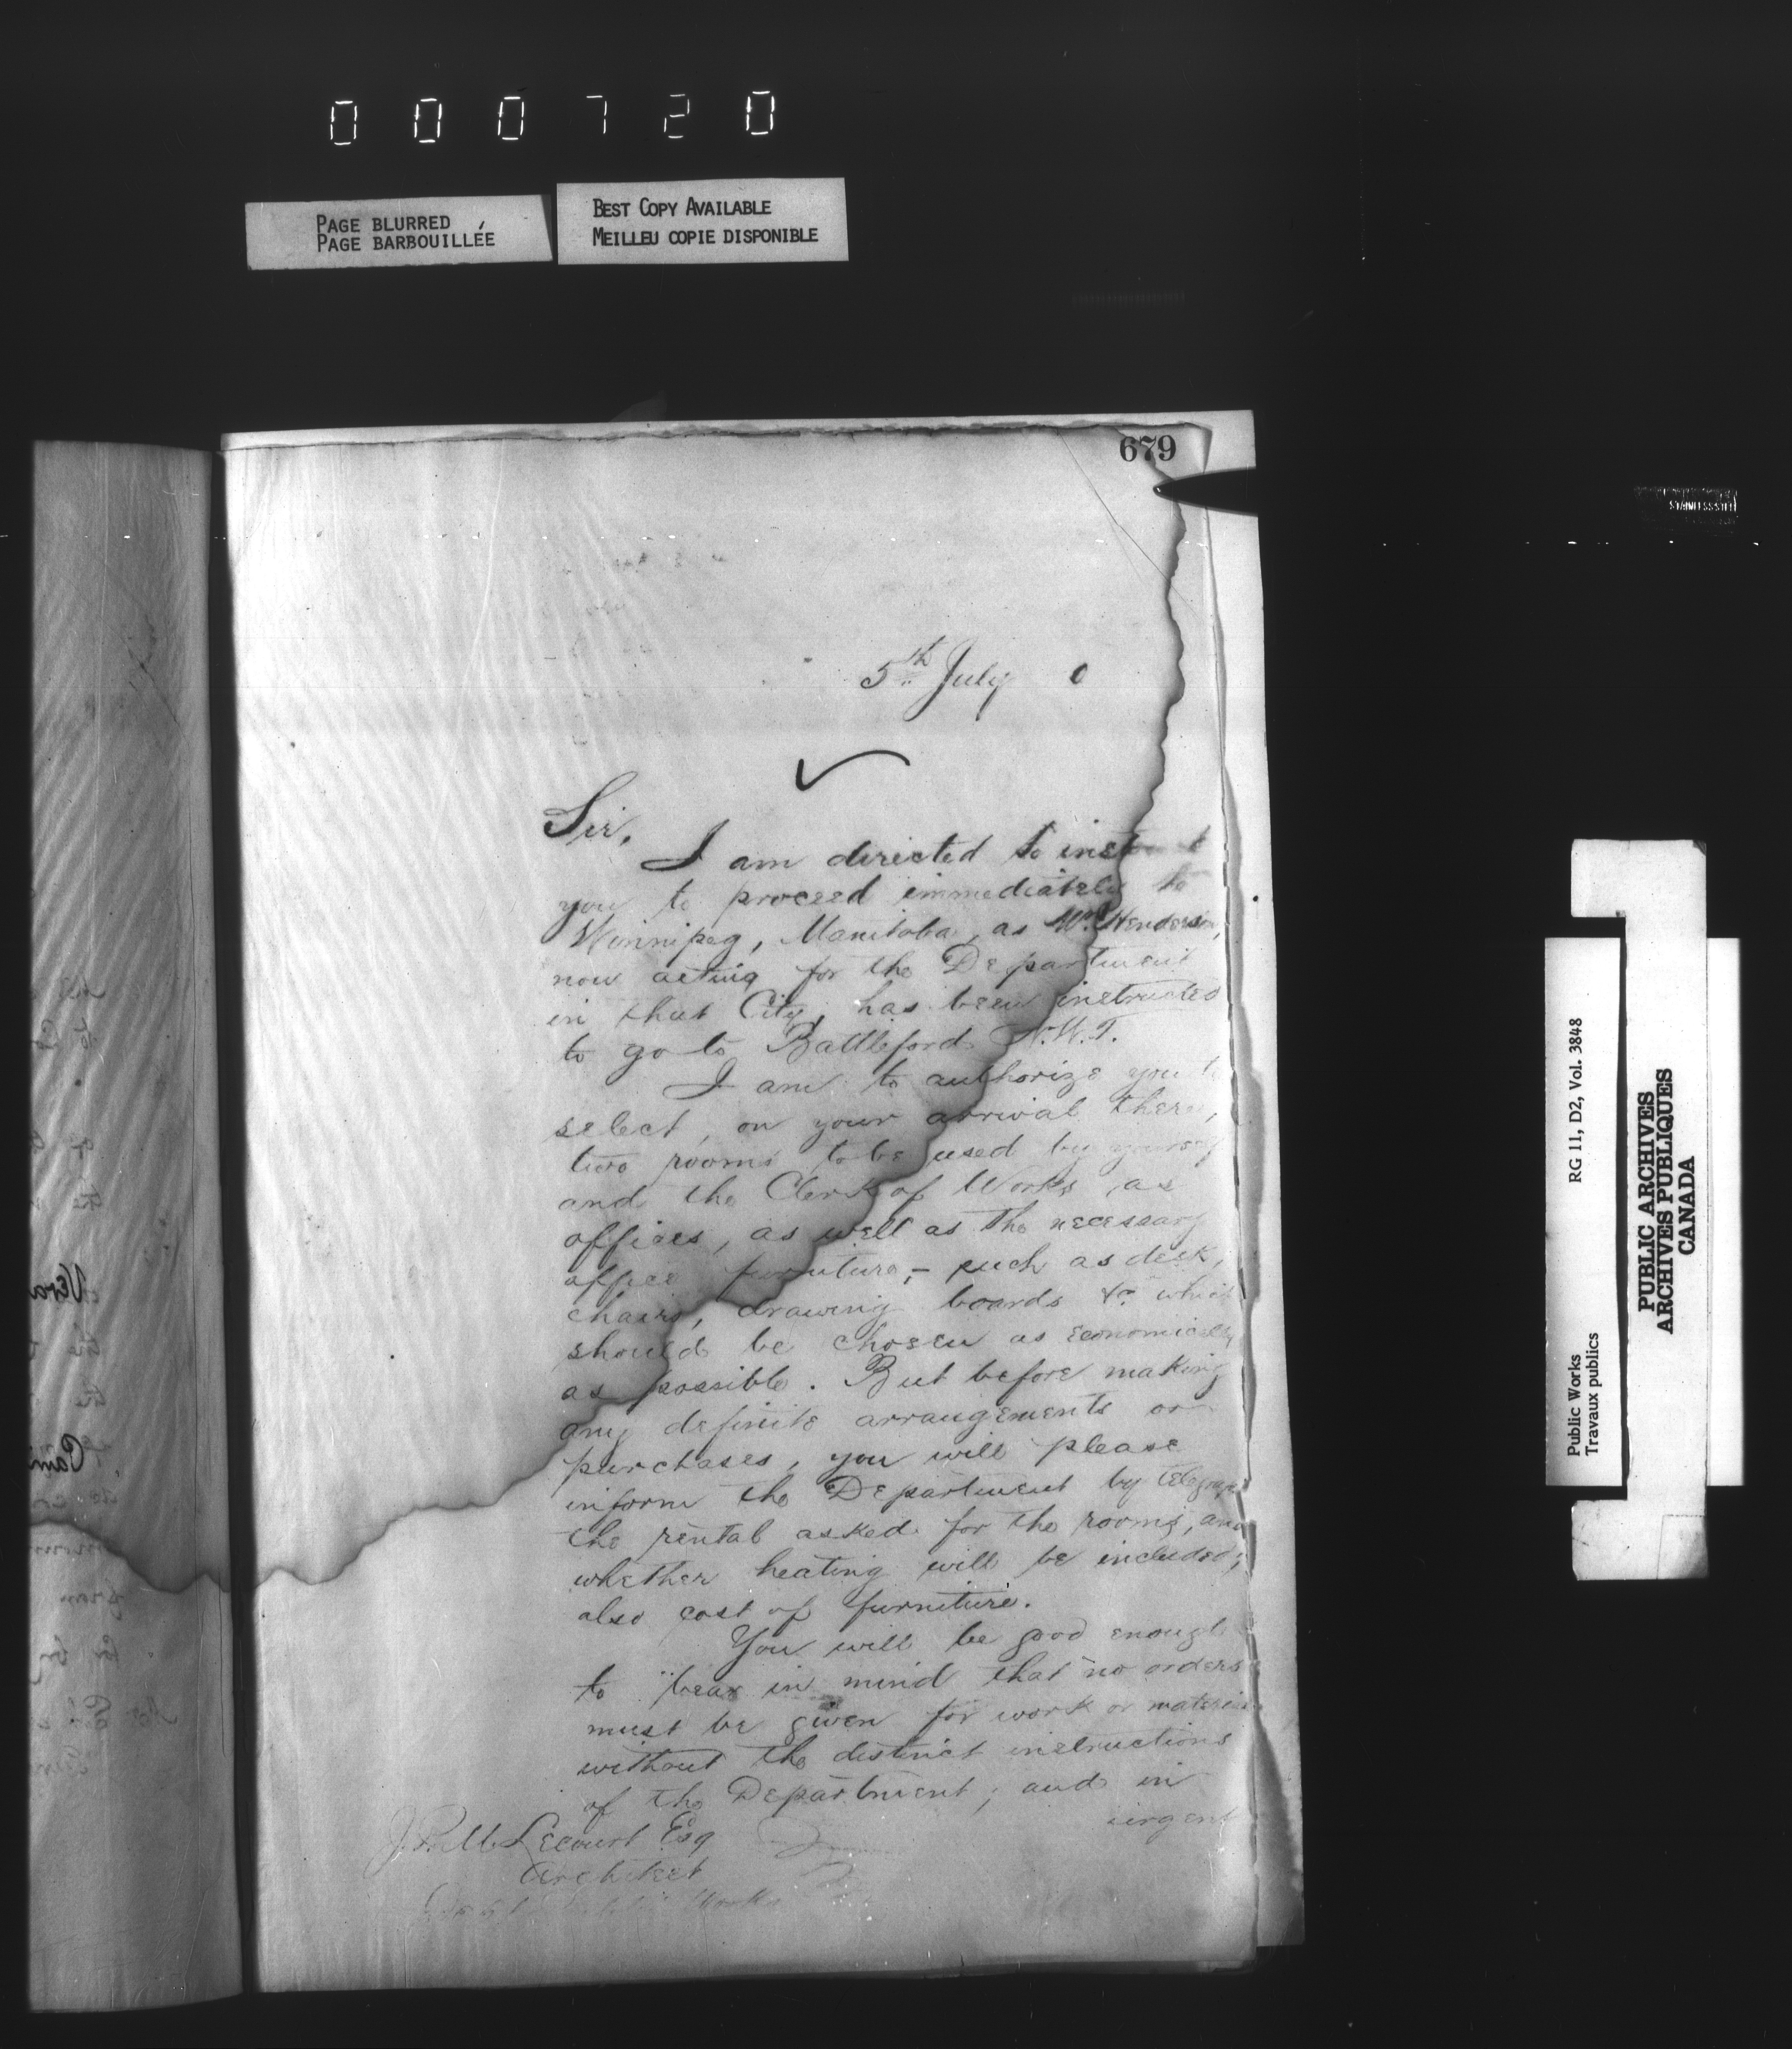 000720
PAGE BLURRED
PAGE BARBOUILLÉE
BEST COPY AVAILABLE
MEILLEU COPIE DISPONIBLE
679
5th July 0
Sir,
I am directed to inst
you to proceed immediately to
Winnipeg, Manitoba, as Wm Henderson,
now acting for the Department
in that City, has been instructed
to go to Battleford N.W.T.
I am to authorize you to
select, on your arrival there,
two rooms to be used by
and the Clerk of Works, as
offices, as well as the necessary
office furniture, - such as desk,
chairs, drawing boards &c which
should be chosen as economically
as possible. But before making
any definite arrangements or
purchases, you will please
inform the Department by telegraph
the rental asked for the rooms, and
whether heating will be included;
also cost of furniture.
You will be good enough
to bear in mind that no orders
must be given for work or material
without the distinct instructions
of the Department; and in
urgent
Lecourt Esq
Architect
Works
STAINLESS STEEL
Public Works
Travaux publics
RG 11, D2, Vol. 3848
PUBLIC ARCHIVES
ARCHIVES PUBLIQUES
CANADA